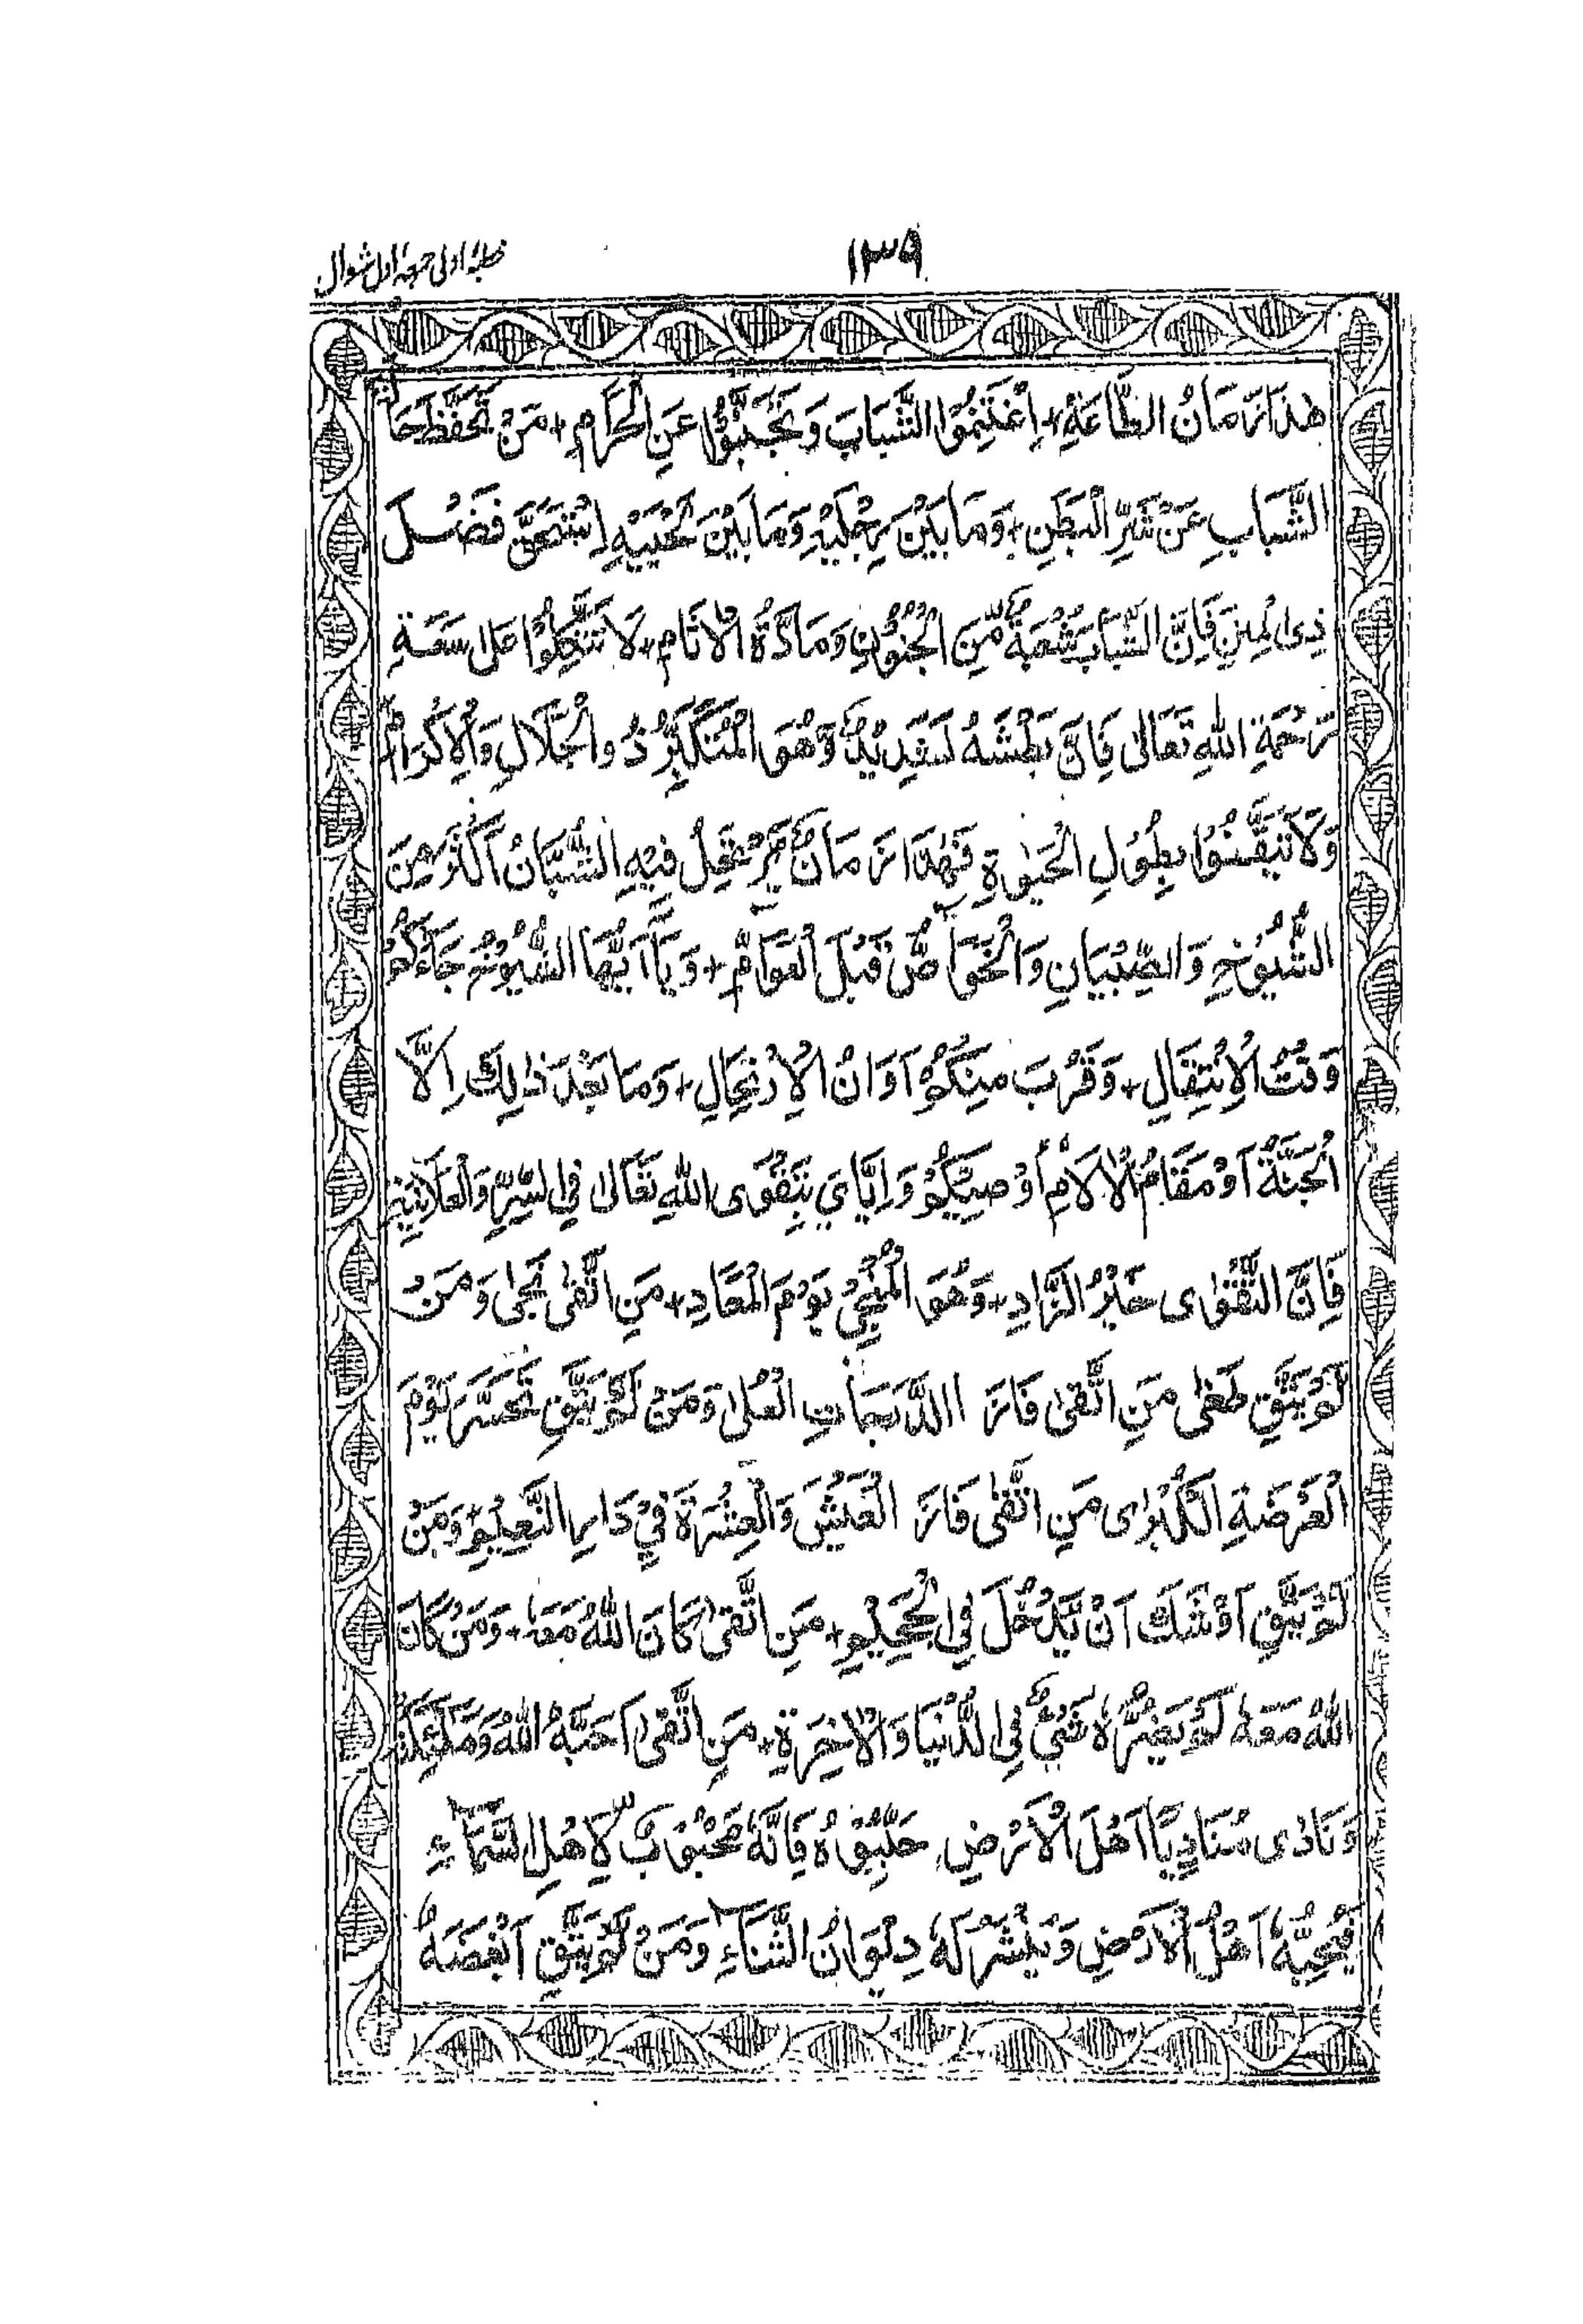 ١٣٩
خطبۂ اولی جمعۂ اول شوال
هٰذَا زَمَانُ الطَّاعَةِ + اِغْتَنِمُوا الشَّبَابَ وَتَجَنَّبُوْا عَنِ الْحَرَامِ + مَنْ تَحَفَّظَ حَالَ
الشَّبَابِ عَنْ شَرِّ الْبَطَنِ + وَمَا بَيْنَ رِجْلَيْهِ وَمَا بَيْنَ لَحْيَيْهِ اِسْتَحَقَّ فَضْلَ
ذِى الْمِنَنِ فَاِنَّ الشَّبَابَ شُعْبَةٌ مِّنَ الْجُنُوْنِ وَمَادَّةُ الْاٰثَامِ + لَا تَتَّكِلُوْا عَلٰى سَعَةِ
رَحْمَةِ اللّٰهِ تَعَالٰى فَاِنَّ بَطْشَهٗ لَشَدِيْدٌ وَهُوَ الْمُتَكَبِّرُ ذُو الْجَلَالِ وَالْاِكْرَامِ
وَلَا تَتَيَقَّنُوْا بِطُوْلِ الْحَيٰوةِ فَهٰذَا زَمَانٌ يَّرْتَحِلُ فِيْهِ الشُّبَّانُ اَكْثَرَ مِنَ
الشُّيُوْخِ وَالصِّبْيَانِ وَالْخَوَاصُّ قَبْلَ الْعَوَامِّ + وَيَا اَيُّهَا الشُّيُوْخُ جَاءَكُمْ
وَقْتُ الْاِنْتِقَالِ + وَقَرُبَ مِنْكُمْ اَوَانُ الْاِرْتِحَالِ + وَمَا بَعْدَ ذٰلِكَ اِلَّا
الْجَنَّةُ اَوْ مَقَامُ الْاٰلَامِ اُوْصِيْكُمْ وَاِيَّايَ بِتَقْوَى اللّٰهِ تَعَالٰى فِى السِّرِّ وَالْعَلَانِيَةِ
فَاِنَّ التَّقْوٰى خَيْرُ الزَّادِ + وَهُوَ الْمُنْجِيْ يَوْمَ الْمَعَادِ + مَنِ اتَّقٰى نَجٰى وَمَنْ
لَمْ يَتَّقِ طَغٰى مَنِ اتَّقٰى فَازَ الدَّرَجَاتِ الْعُلٰى وَمَنْ لَمْ يَتَّقِ تَحَسَّرَ يَوْمَ
الْعَرْضَةِ الْكُبْرٰى مَنِ اتَّقٰى فَازَ الْعَيْشَ وَالْعِشْرَةَ فِيْ دَارِ النَّعِيْمِ + وَمَنْ
لَمْ يَتَّقِ اَوْشَكَ اَنْ يَّدْخُلَ فِى الْجَحِيْمِ + مَنِ اتَّقٰى كَانَ اللّٰهُ مَعَهٗ + وَمَنْ كَانَ
اللّٰهُ مَعَهٗ لَمْ يَضُرَّهٗ شَيْءٌ فِى الدُّنْيَا وَالْاٰخِرَةِ + مَنِ اتَّقٰى اَحَبَّهُ اللّٰهُ وَمَلٰٓئِكَتُهٗ
وَنَادٰى مُنَادٍ يَّا اَهْلَ الْاَرْضِ حَبِّبُوْهُ فَاِنَّهٗ مَحْبُوْبٌ لِاَهْلِ السَّمَاءِ
فَيُحِبُّهٗ اَهْلُ الْاَرْضِ وَيُنْشَرُ لَهٗ دِيْوَانُ الثَّنَاءِ وَمَنْ لَمْ يَتَّقِ اَبْغَضَهُ